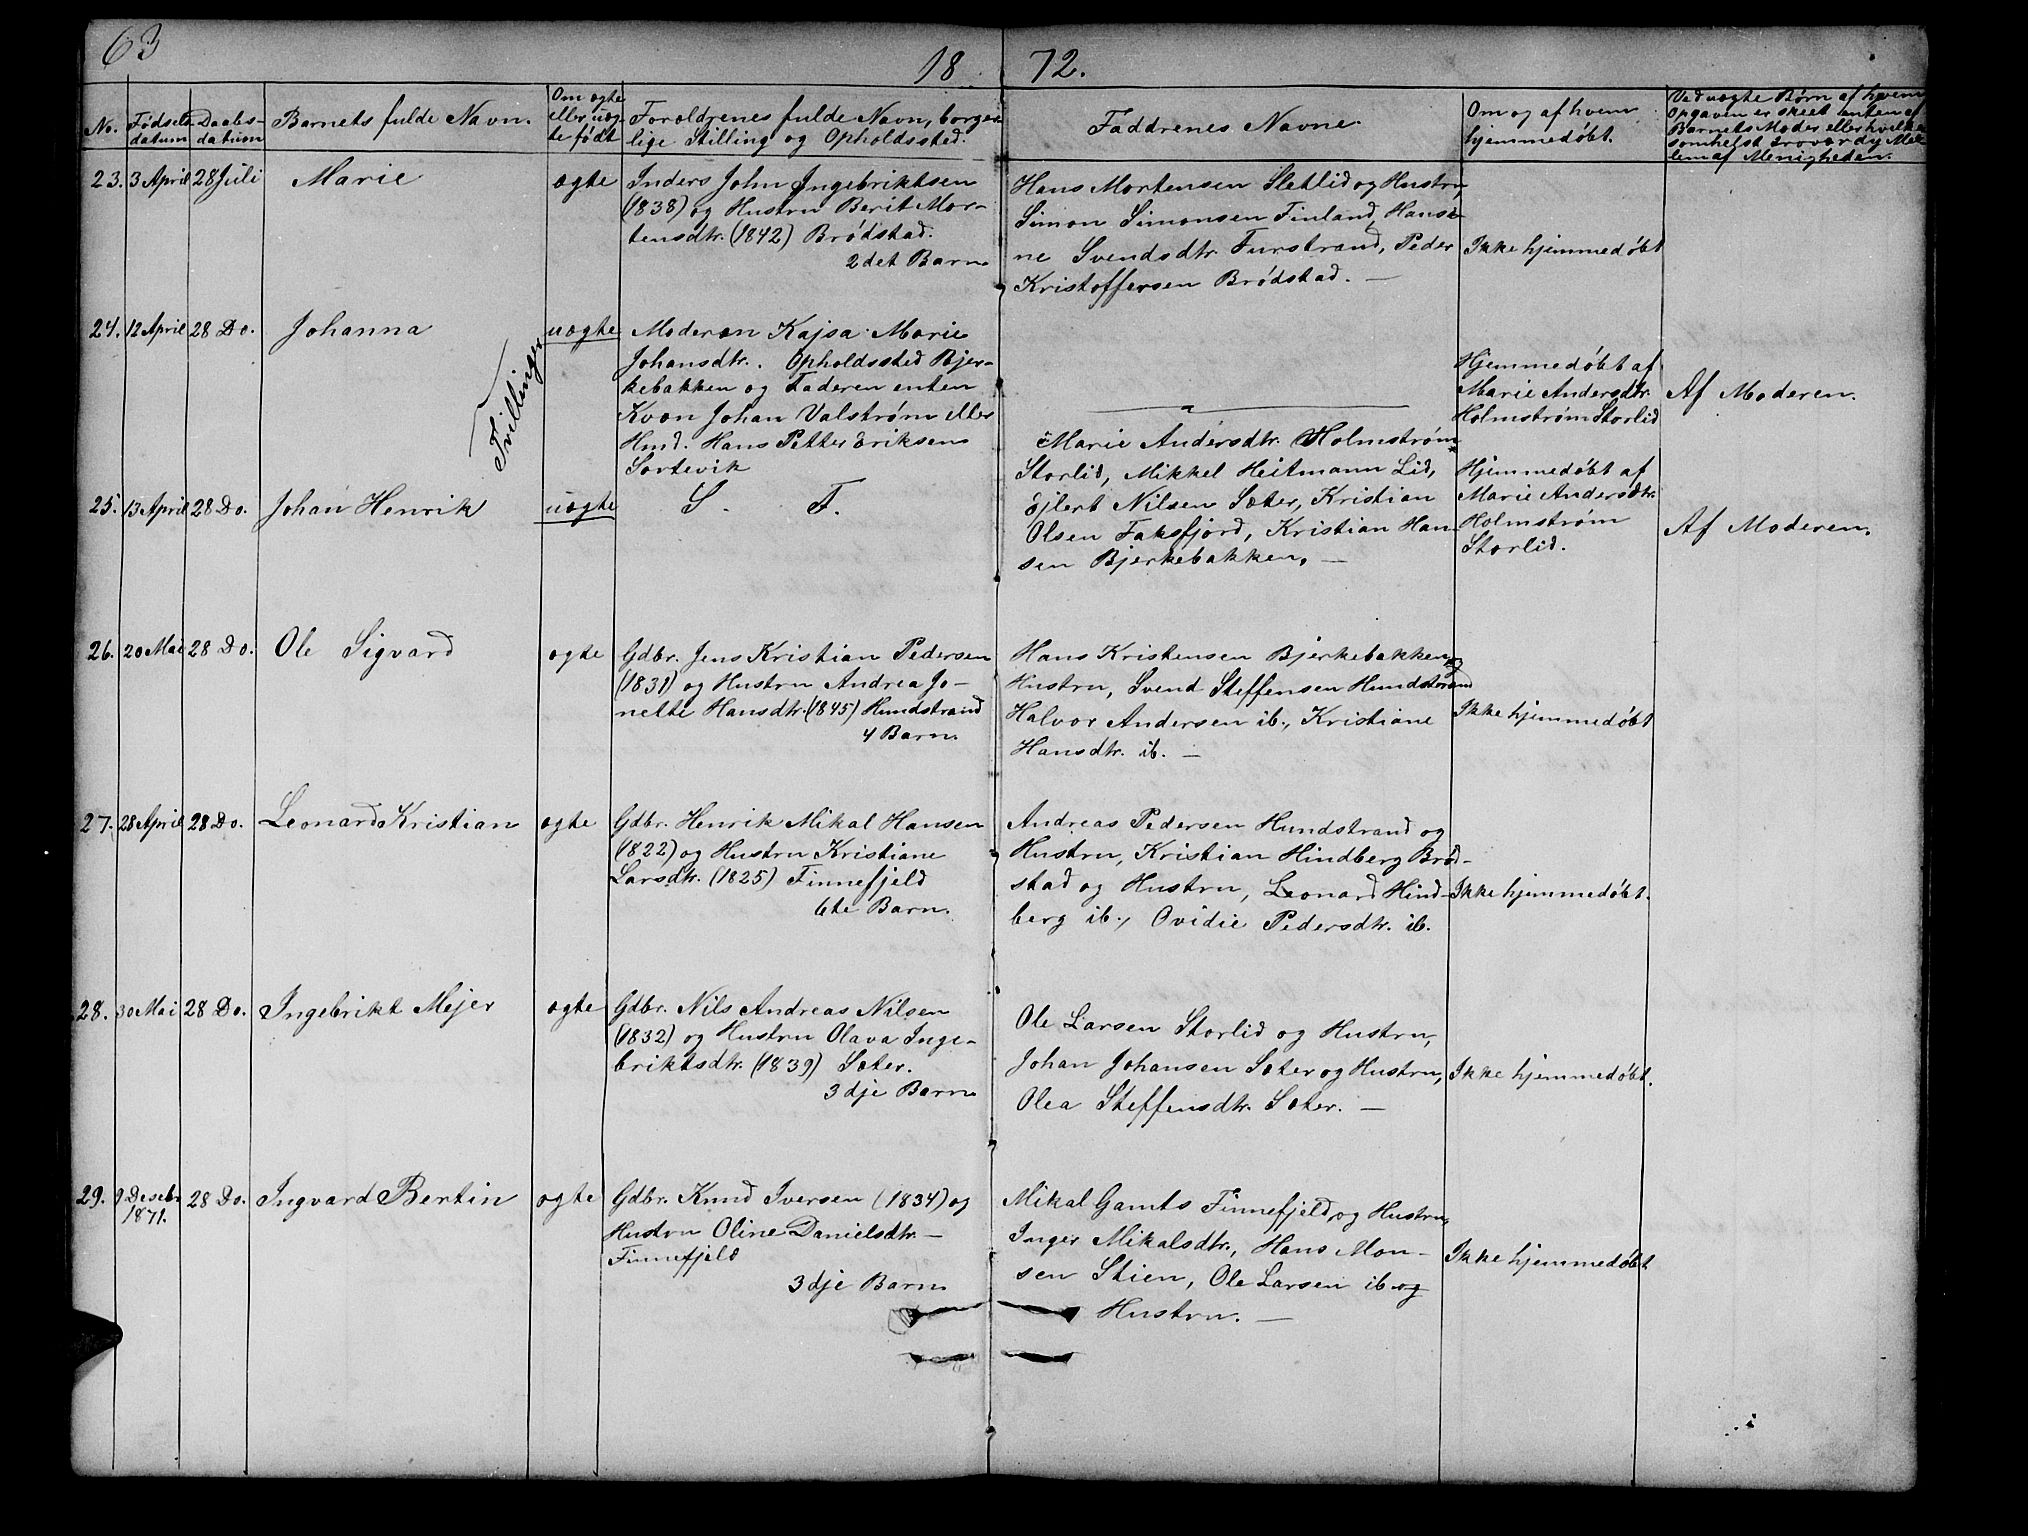 63
18 72.
No.
Fødsels-
datum
Daabs-
datum
Barnets fulde Navn.
Om ægte
eller uæg-
te født
Foræld­renes fulde Navn, borger-
lige Stilling og Opholdssted.
Faddrenes Navne.
Om og af hvem
hjemmedøbt.
Ved uægte Børn af hvem
Opgaven er skeet enten af
Barnets Moder eller hvilket
somhelst troværdig Med-
lem af Menigheden.
23. 3 April 28 Juli Marie ægte
Inders John Ingebriktsen
(1838) og Hustru Berit Mor-
tensdtr. (1842) Brødstad.
2det Barn
Hans Mortensen Sletlid og Hustru,
Simon Simonsen Finland, Hansi-
ne Svendsdtr. Furstrand, Peder
Kristoffersen Brødstad. —
Ikke hjemmedøbt
24. 12 April 28 Do. Johanna uægte
Tvillinger
Moderen Kajsa Marie
Johansdtr. Opholdssted Bjer-
kebakken og Faderen enten
Kvæn Johan Valstrøm eller
Hmd. Hans Petter Eriksen
Sortevik
Hjemmedøbt af
Marie Andersdtr.
Holmstrøm Storlid
Af Moderen.
25. 13 April 28 Do. Johan Henrik uægte
S. T.
Marie Andersdtr. Holmstrøm
Storlid, Mikkel Heitmann Lid,
Ejlert Nilsen Sæter, Kristian
Olsen Faksfjord, Kristian Han-
sen Bjerkebakken. —
Hjemmedøbt af
Marie Andersdtr.
Holmstrøm
Storlid.
Af Moderen.
26. 20 Mai 28 Do. Ole Sigvard ægte
Gdbr. Jens Kristian Pedersen
(1831) og Hustru Andrea Jo-
nette Hansdtr. (1845) Hundstrand
4 Barn.
Hans Kristensen Bjerkebakken og
Hustru, Svend Steffensen Hundstrand
Halvor Andersen ib., Kristiane
Hansdtr. ib. —
Ikke hjemmedøbt
27. 28 April 28 Do. Leonard Kristian ægte
Gdbr. Henrik Mikal Hansen
(1822) og Hustru Kristiane
Larsdtr. (1825) Finnefjeld
6te Barn.
Andreas Pedersen Hundstrand og
Hustru, Kristian Hindberg Brød-
stad og Hustru, Leonard Hind-
berg ib., Ovidie Pedersdtr. ib.
Ikke hjemmedøbt.
28. 30 Mai 28 Do. Ingebrikt Mejer ægte
Gdbr. Nils Andreas Nilsen
(1832) og Hustru Olava Inge-
briktsdtr. (1839) Sæter.
3dje Barn
Ole Larsen Storlid og Hustru,
Johan Johansen Sæter og Hustru,
Olea Steffensdtr. Sæter. —
Ikke hjemmedøbt.
29. 9 Desebr. 28 Do. Ingvard Bertin ægte
1871.
Gdbr. Knud Iversen (1834) og
Hustru Oline Danielsdtr. —
Finnefjeld
3dje Barn
Mikal Gamts Finnefjeld og Hustru,
Inger Mikalsdtr., Hans Mon-
sen Stien, Ole Larsen ib og
Hustru. —
Ikke hjemmedøbt